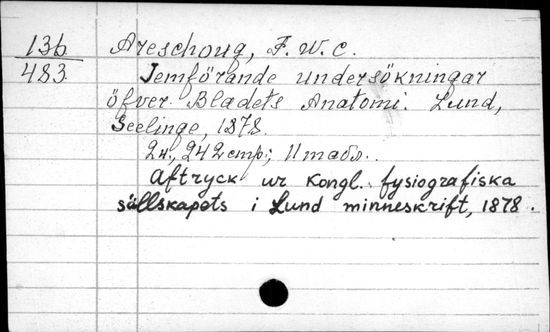 136 Areschoug, F. W. C.
483 Jemförande undersökningar
öfver Bladets Anatomi. Lund,
Seelinge, 1878.
2н, 242 стр; 11 табл.
Aftryck ur Kongl. fysiografiska
sällskapets i Lund minneskrift, 1878.